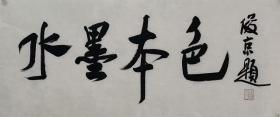 水墨本色
俊京題